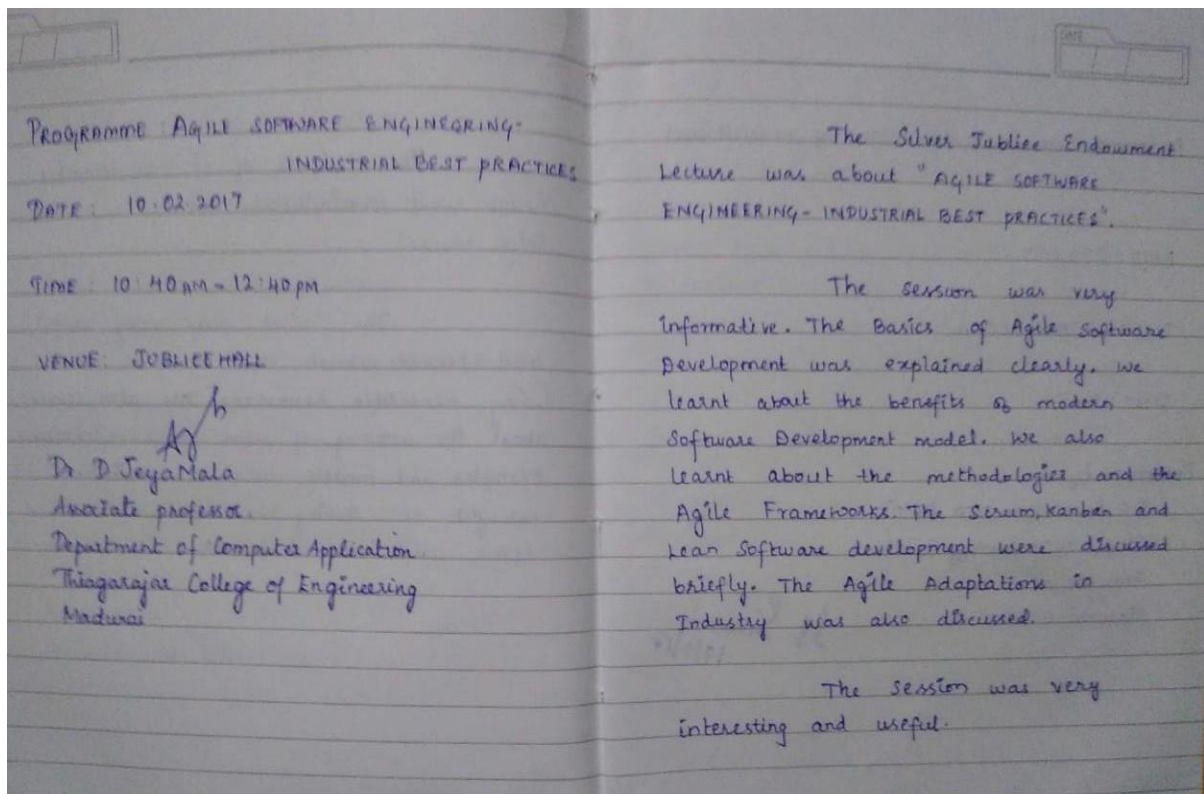 PROGRAMME: AGILE SOFTWARE ENGINEERING-
INDUSTRIAL BEST PRACTICES
DATE: 10.02.2017
TIME: 10:40 AM - 12:40 PM
VENUE: JUBLIEE HALL
Dr. D JeyaMala
Associate professor
Department of Computer Application
Thiagarajar College of Engineering
Madurai
DATE
The Silver Jubliee Endowment
Lecture was about "AGILE SOFTWARE
ENGINEERING- INDUSTRIAL BEST PRACTICES".
The session was very
informative. The Basics of Agile Software
Development was explained clearly. We
learnt about the benefits of modern
Software Development model. We also
learnt about the methodologies and the
Agile Frameworks. The Scrum, Kanban and
Lean Software development were discussed
briefly. The Agile Adaptations in
Industry was also discussed.
The session was very
interesting and useful.